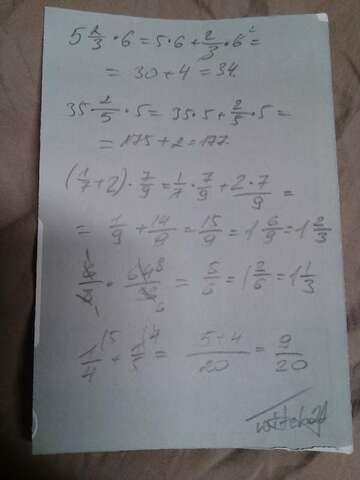 5 2/3 · 6 = 5 · 6 + 2/3 · 6 =
= 30 + 4 = 34.
35 · 2/5 · 5 = 35 · 5 + 2/5 · 5 =
= 175 + 2 = 177.
(1/7 + 2) · 7/9 = 1/7 · 7/9 + 2·7/9 =
= 1/9 + 14/9 = 15/9 = 1 6/9 = 1 2/3
= 1 2/6 = 1 1/3
1/4 + 1/5 = 5+4/20 = 9/20